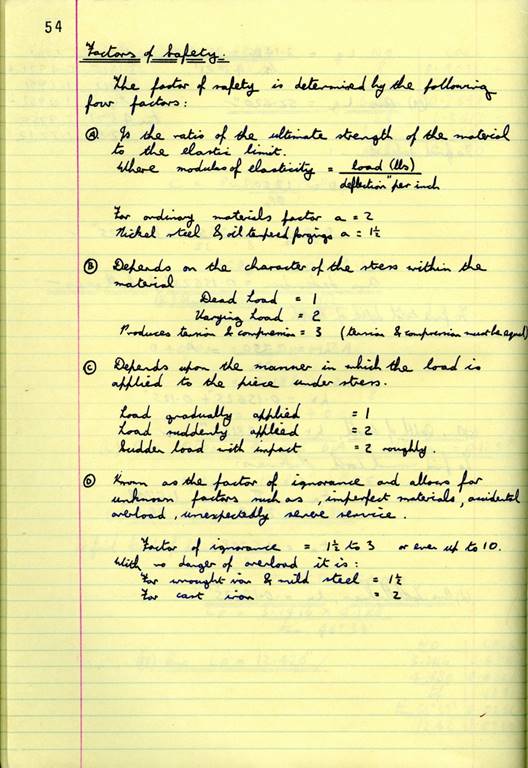 54
Factors of Safety.
The factor of safety is determined by the following
four factors:
(A) Is the ratio of the ultimate strength of the material
to the elastic limit.
Where modulus of elasticity = load (lbs)
deflection" per inch
For ordinary materials factor a = 2
Nickel steel & oil tempered forgings a = 1½
(B) Depends on the character of the stress within the
material
Dead Load = 1
Varying Load = 2
Produces tension & compression = 3 (tension & compression must be equal)
(C) Depends upon the manner in which the load is
applied to the piece under stress.
Load gradually applied = 1
Load suddenly applied = 2
Sudden load with impact = 2 roughly.
(D) Known as the factor of ignorance and allows for
unknown factors such as, imperfect materials, accidental
overload, unexpectedly severe service.
Factor of ignorance = 1½ to 3 or even up to 10.
With no danger of overload it is:
For wrought iron & mild steel = 1½
For cast iron = 2